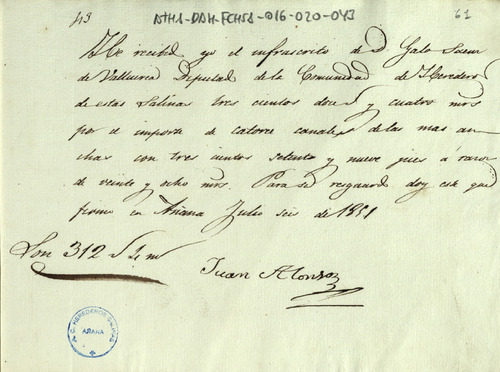 43 ATHA-DAH-FCHSA-016-020-043 61
He recibido yo el infrascrito de D. Galo Saenz
de Valluerca Diputado de la Comunidad de Herederos
de estas Salinas tres cientos doce y cuatro mrs
por el importe de catorce canales de las mas an
chas con tres cientos setenta y nueve pies á razon
de veinte y ocho mrs. Para su resguardo doy este que
firmo en Añana Julio seis de 1851
Son 312 4 m
Juan Alonso
HEREDEROS SALINAS
AÑANA